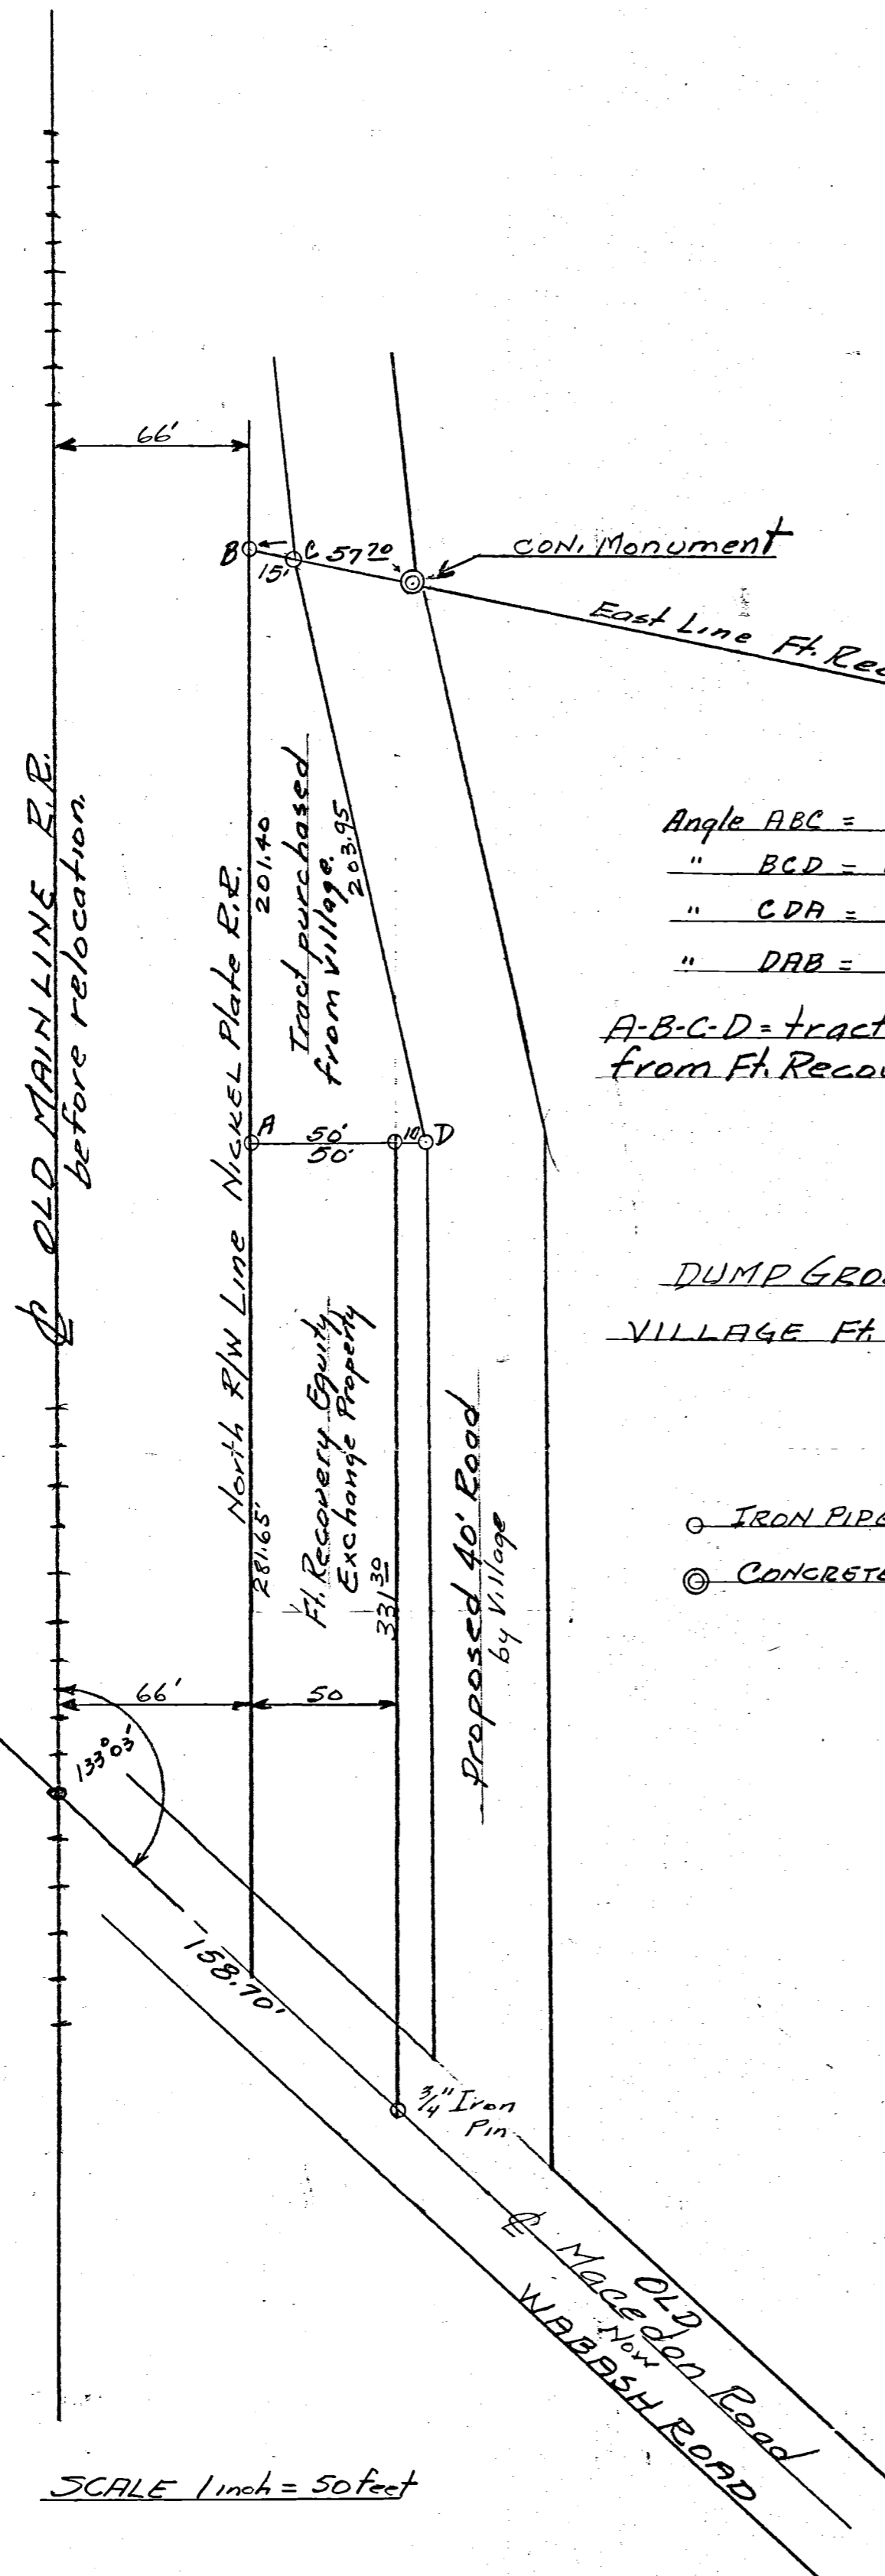 66'
B
C
57 20
15'
CON. Monument
East Line Ft. Rec
℄ OLD MAINLINE R.R.
before relocation.
North R/W Line Nickel Plate R.R.
201.40
Tract purchased
from village.
203.95
Angle ABC =
" BCD =
" CDA =
" DAB =
A-B-C-D = tract
from Ft. Recov
A
50'
50'
10
D
DUMP GRO
VILLAGE Ft.
281.65'
Ft. Recovery Equity
Exchange Property
331 30
Proposed 40' Road
by Village
IRON PIPE
CONCRETE
66'
50
133°03'
158.70'
3/4" Iron
Pin
OLD
℄ Macedon Road
Now
WABASH ROAD
SCALE 1 inch = 50 feet